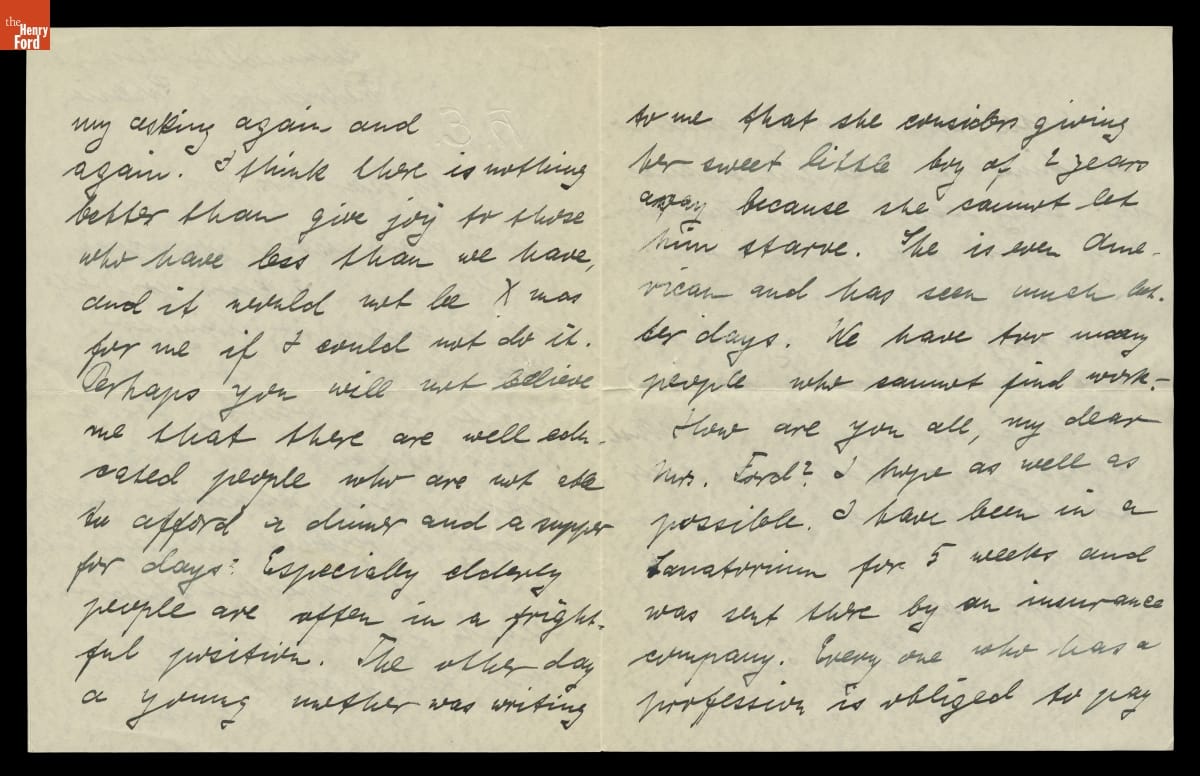 the
Henry
Ford
R. E.
my asking again and
again. I think there is nothing
better than give joy to those
who have less than we have,
and it would not be X mas
for me if I could not do it.
Perhaps you will not believe
me that there are well edu-
cated people who are not able
to afford a dinner and a supper
for days. Especially elderly
people are often in a fright-
ful position. The other day
a young mother was writing
to me that she considers giving
her sweet little boy of 2 years
away because she cannot let
him starve. She is even Ame-
rican and has seen much bet-
ter days. We have too many
people who cannot find work.-
How are you all, my dear
Mrs. Ford? I hope as well as
possible. I have been in a
Sanatorium for 5 weeks and
was sent there by an insurance
company. Every one who has a
profession is obliged to pay